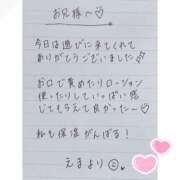 お兄様へ♡
今日は遊びに来てくれて
ありがとうございました
お口で責めたりローション
使ったりしていっぱい感
じてもらえて良かった〜♡
私も保湿がんばる！
えまより☺